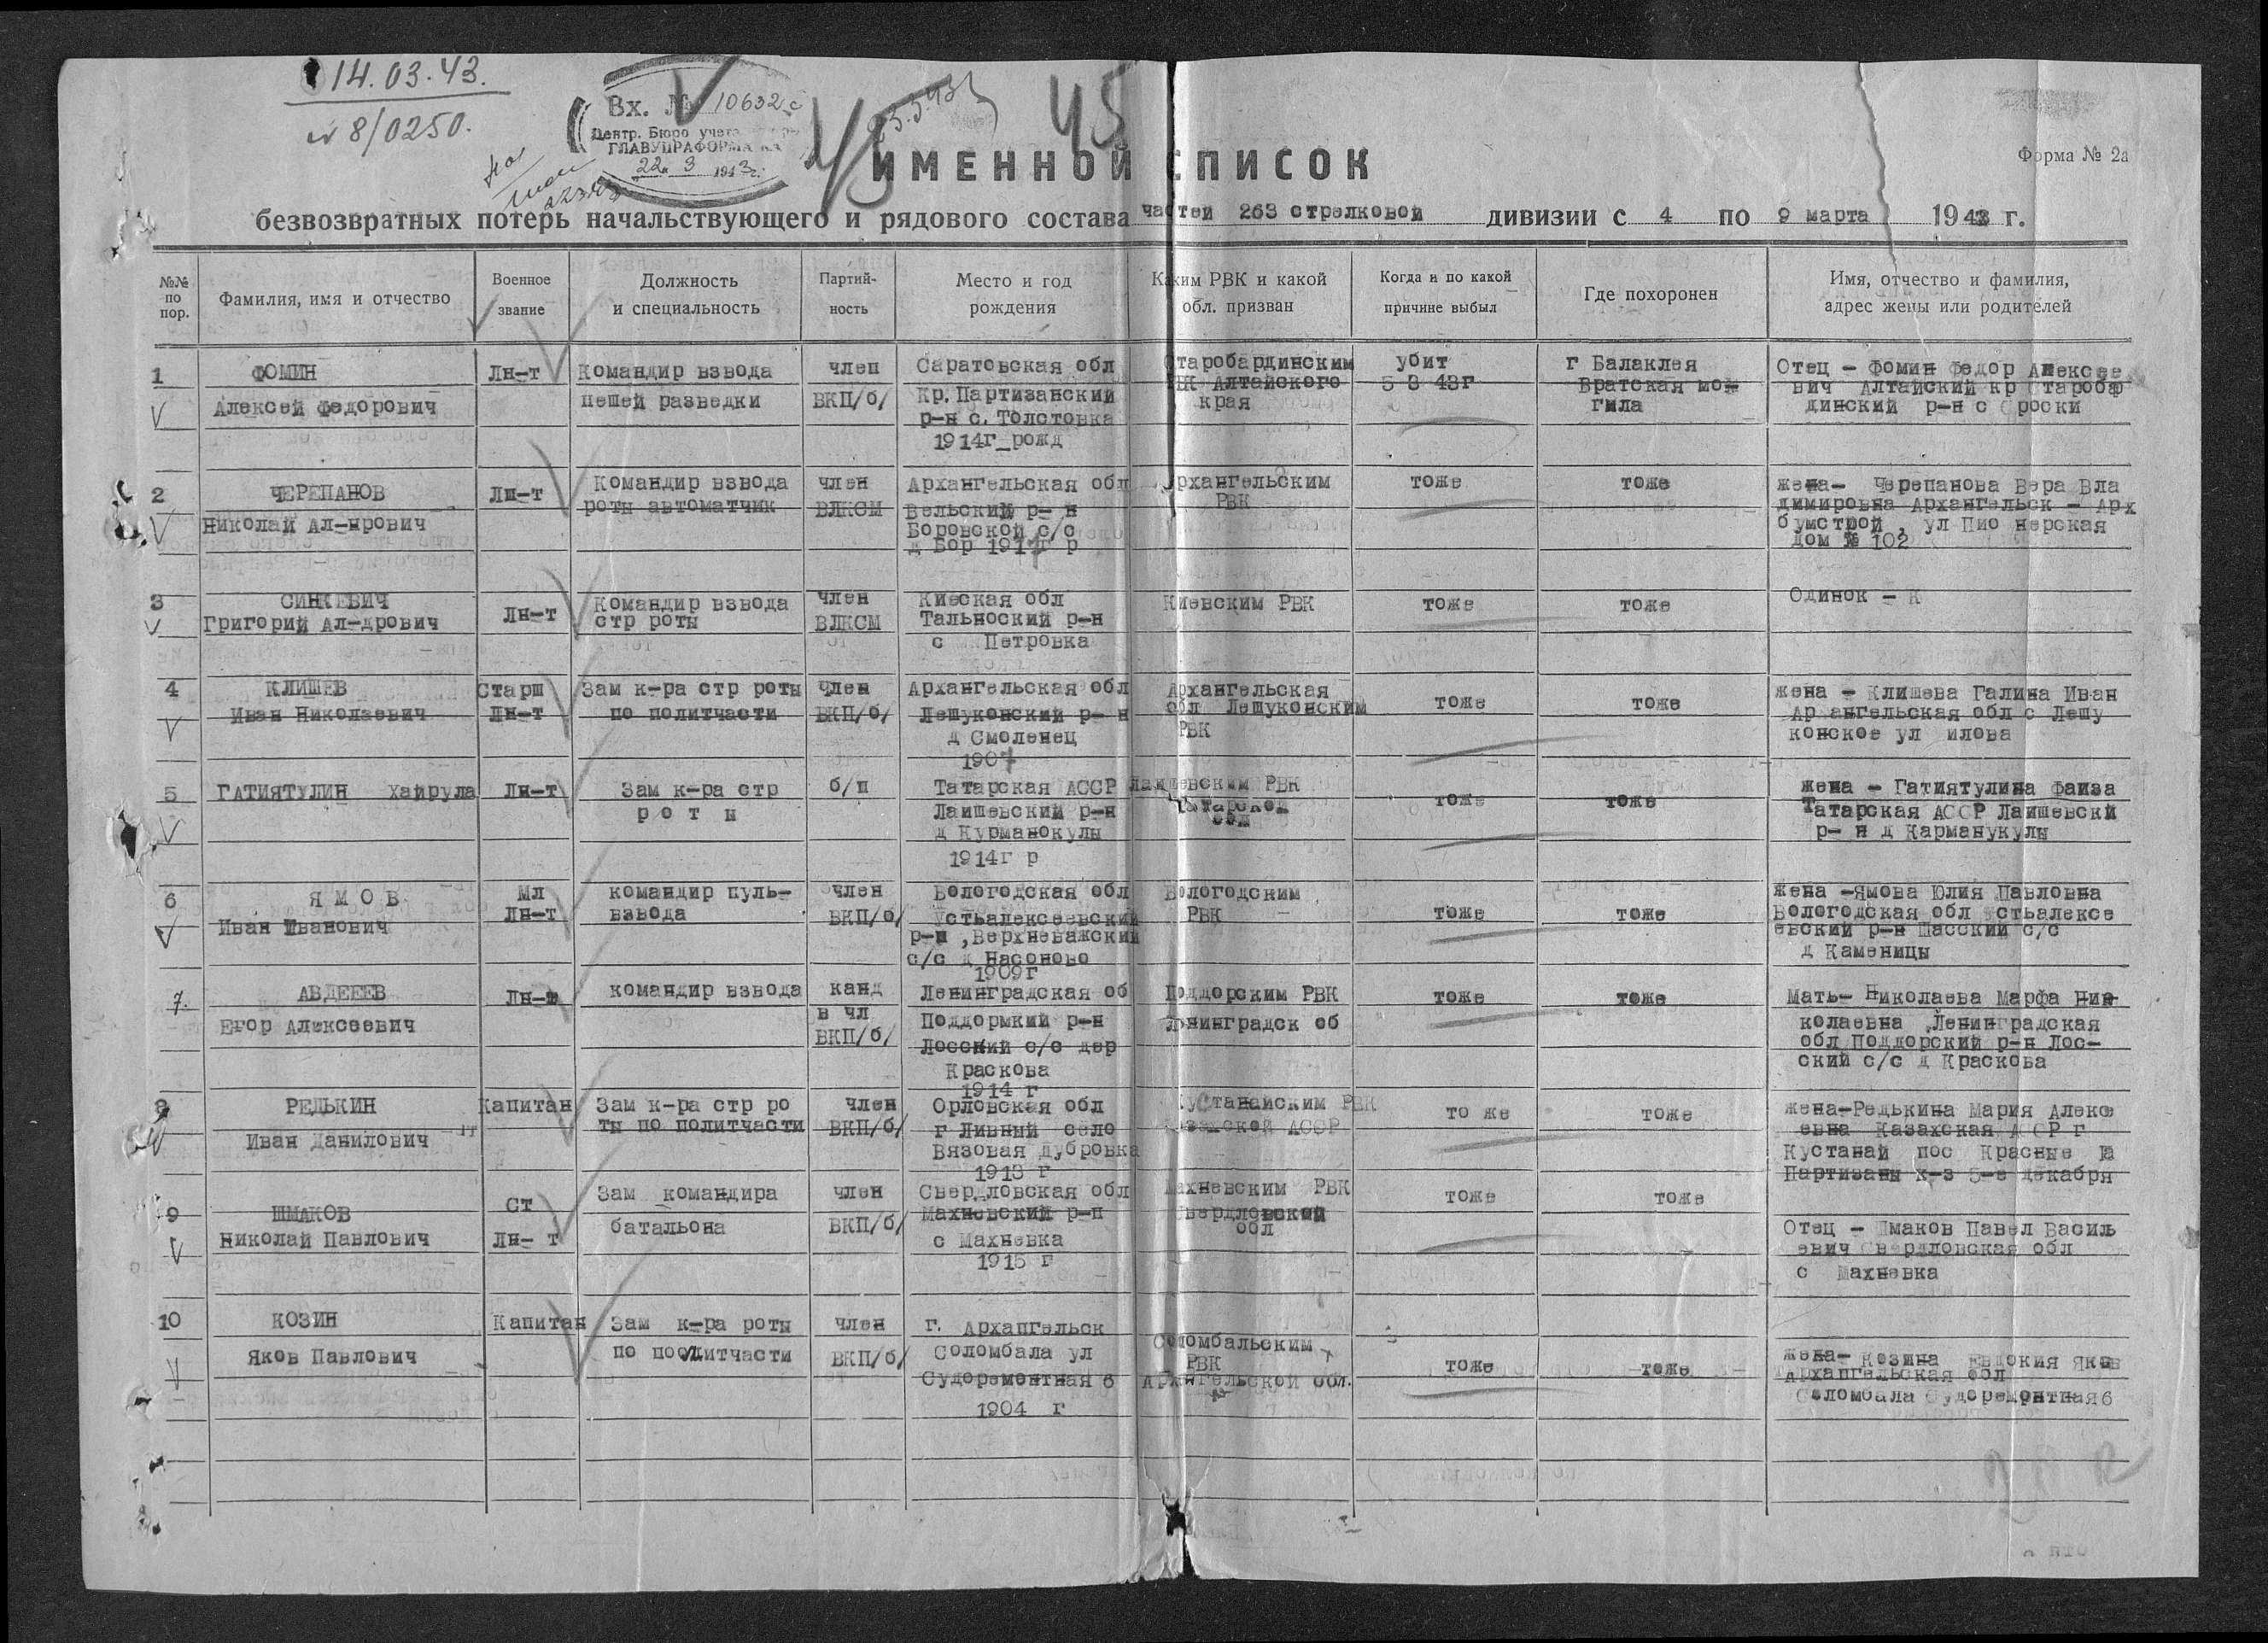 14.03.43.
№ 8/0250.
Вх. № 10632с
Центр. Бюро учета
ГЛАВУПРАФОРМА КА
22. 3 1943г.
23.3.43
45
ИМЕННОЙ СПИСОК
Форма № 2а
безвозвратных потерь начальствующего и рядового состава частей 263 стрелковой дивизии с 4 по 9 марта 1943 г.
№№ по пор.
Фамилия, имя и отчество
Военное звание
Должность и специальность
Партий- ность
Место и год рождения
Каким РВК и какой обл. призван
Когда и по какой причине выбыл
Где похоронен
Имя, отчество и фамилия, адрес жены или родителей
1
ФОМИН
Алексей Федорович
Лн-т
Командир взвода
пешей разведки
член
ВКП/б/
Саратовская обл
Кр.Партизанский
р-н с. Толстовка
1914г рожд
Старобардинским
РВК Алтайского
края
убит
5 3 43г
г Балаклея
Братская мо-
гила
Отец - Фомин Федор Алексее
вич Алтайский кр Старобар
динский р-н с роски
2
ЧЕРЕПАНОВ
Николай Ал-нрович
Лн-т
Командир взвода
роты автоматчик
член
ВЛКСМ
Архангельская обл
Вельский р- н
Боровской с/с
д Бор 1917г р
Архангельским
РВК
тоже
тоже
жена- Черепанова Вера Вла
димировна Архангельск - Арх
бумстрой, ул Пио нерская
дом № 102
3
СИНКЕВИЧ
Григорий Ал-дрович
Лн-т
Командир взвода
стр роты
член
ВЛКСМ
Киеская обл
Тальноский р-н
с Петровка
Киевским РВК
тоже
тоже
Одинок - К
4
КЛИШЕВ
Иван Николаевич
Старш
Лн-т
Зам к-ра стр роты
по политчасти
член
ВКП/б/
Архангельская обл
Лешуконский р- н
д Смоленец
1907
Архангельская
обл Лешуконским
РВК
тоже
тоже
жена - Клишева Галина Иван
Ар ангельская обл с Лешу
конское ул илова
5
ГАТИЯТУЛИН Хайрула
Лн-т
Зам к-ра стр
р о т ы
б/п
Татарская АССР
Лаишевский р-н
д Курманокулы
1914г р
Лаишевским РВК
Татарской
обл
тоже
тоже
жена - Гатиятулина Фаиза
Татарская АССР Лаишевски
р- н д Карманукулы
6
Я М О В
Иван Иванович
Мл
Лн-т
командир пуль-
взвода
член
ВКП/б/
Вологодская обл
Устьалексеевский
р-н ,Верхневажский
с/с д Насоново
1909г
Вологодским
РВК
тоже
тоже
жена -Ямова Юлия Павловна
Вологодская обл стьалексе
евский р-н Шасский с/с
д Каменицы
7.
АВДЕЕЕВ
Егор Алексеевич
Лн-т
командир взвода
канд
в чл
ВКП/б/
Ленинградская об
Поддормкий р-н
Лосский с/с дер
Краскова
1914 г
Поддорским РВК
Ленинградск об
тоже
тоже
Мать- Николаева Марфа Ни-
колаевна Ленинградская
обл Поддорский р-н Лос-
ский с/с д Краскова
8
РЕДЬКИН
Иван Данилович
Капитан
Зам к-ра стр ро
ты по политчасти
член
ВКП/б/
Орловская обл
г Ливный село
Вязовая дубровка
1913 г
Кустанайским РВК
Казахской АССР
то же
тоже
жена-Редькина Мария Алексе
евна Казахская АССР г
Кустанай пос Красные
Партизаны х-з 5-е декабря
9
ШМАКОВ
Николай Павлович
Ст
Лн- т
Зам командира
батальона
член
ВКП/б/
Свердловская обл
Махневский р-н
с Махневка
1915 г
Махневским РВК
Свердловской
обл
тоже
тоже
Отец - Шмаков Павел Василь
евич Свердловская обл
с Махневка
10
КОЗИН
Яков Павлович
Капитан
Зам к-ра роты
по поолитчасти
член
ВКП/б/
г. Архангельск
Соломбала ул
Судоремонтная 6
1904 г
Соломбальским
РВК
Архангельской обл.
тоже
тоже
жена- Козина Евдокия Яков
Архангельская обл
Соломбала Судоремонтная6